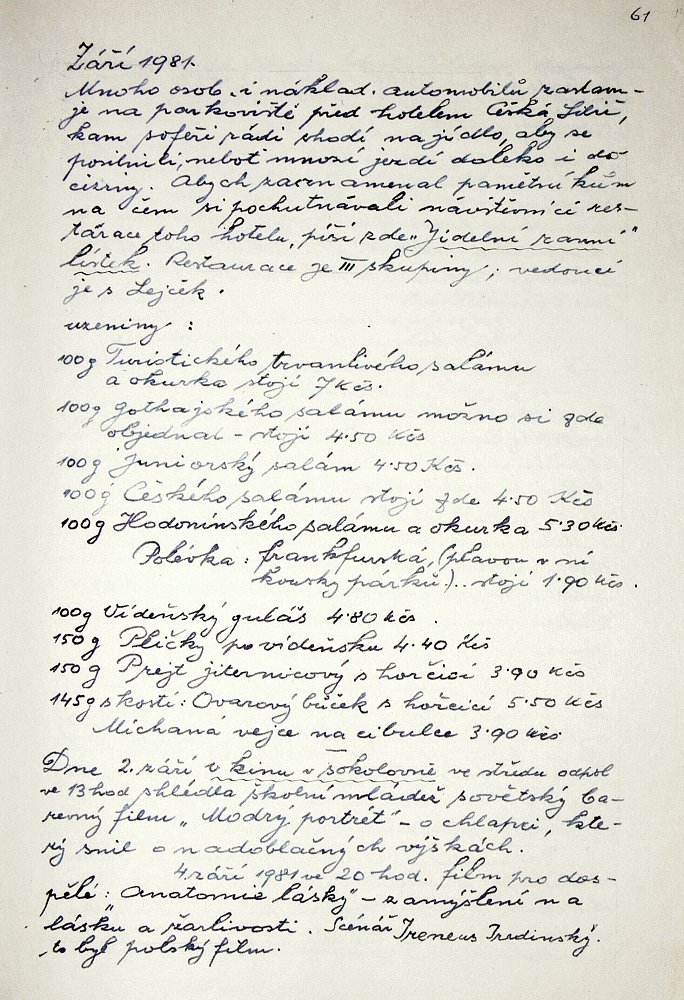 61
Září 1981.
Mnoho osob. i náklad. automobilů zastavu-
je na parkoviště před hotelem Česká Lilie,
kam šoféři rádi chodí na jídlo, aby se
posilnili, neboť mnozí jezdí daleko i do
ciziny. Abych zaznamenal pamětníkům
na čem si pochutnávali návštěvníci res-
tarace toho hotelu, píši zde „Jídelní ranní"
lístek. Restaurace je III skupiny; vedoucí
je s Lejček.
uzeniny:
100g Turistického trvanlivého salámu
a okurka stojí 7 Kčs.
100g gothajského salámu možno si zde
objednat - stojí 4.50 Kčs
100g Juniorský salám 4.50 Kčs.
100g Českého salámu stojí zde 4.50 Kčs
100g Hodonínského salámu a okurka 5.30 Kčs.
Polévka: frankfurská, (plavou v ní
kousky párků.).. stojí 1.90 Kčs.
100g Vídeňský guláš 4.80 Kčs.
150g Plíčky po vídeňsku 4.40 Kčs
150g Prejt jiternicový s horčicí 3.90 Kčs
145g s kostí: Ovarový bůček s hořčicí 5.50 Kčs
Míchaná vejce na cibulce 3.90 Kčs
Dne 2. září v kinu v sokolovně ve středu odpol
ve 13 hod shlédla školní mládež sovětský ba-
revný film „Modrý portrét" - o chlapci, kte-
rý snil o nadoblačných výškách.
4 září 1981 ve 20 hod. film pro dos-
pělé: „Anatomie lásky" - zamyšlení na
lásku a žarlivosti. Scénář Ireneus Iredinský.
to byl polský film.